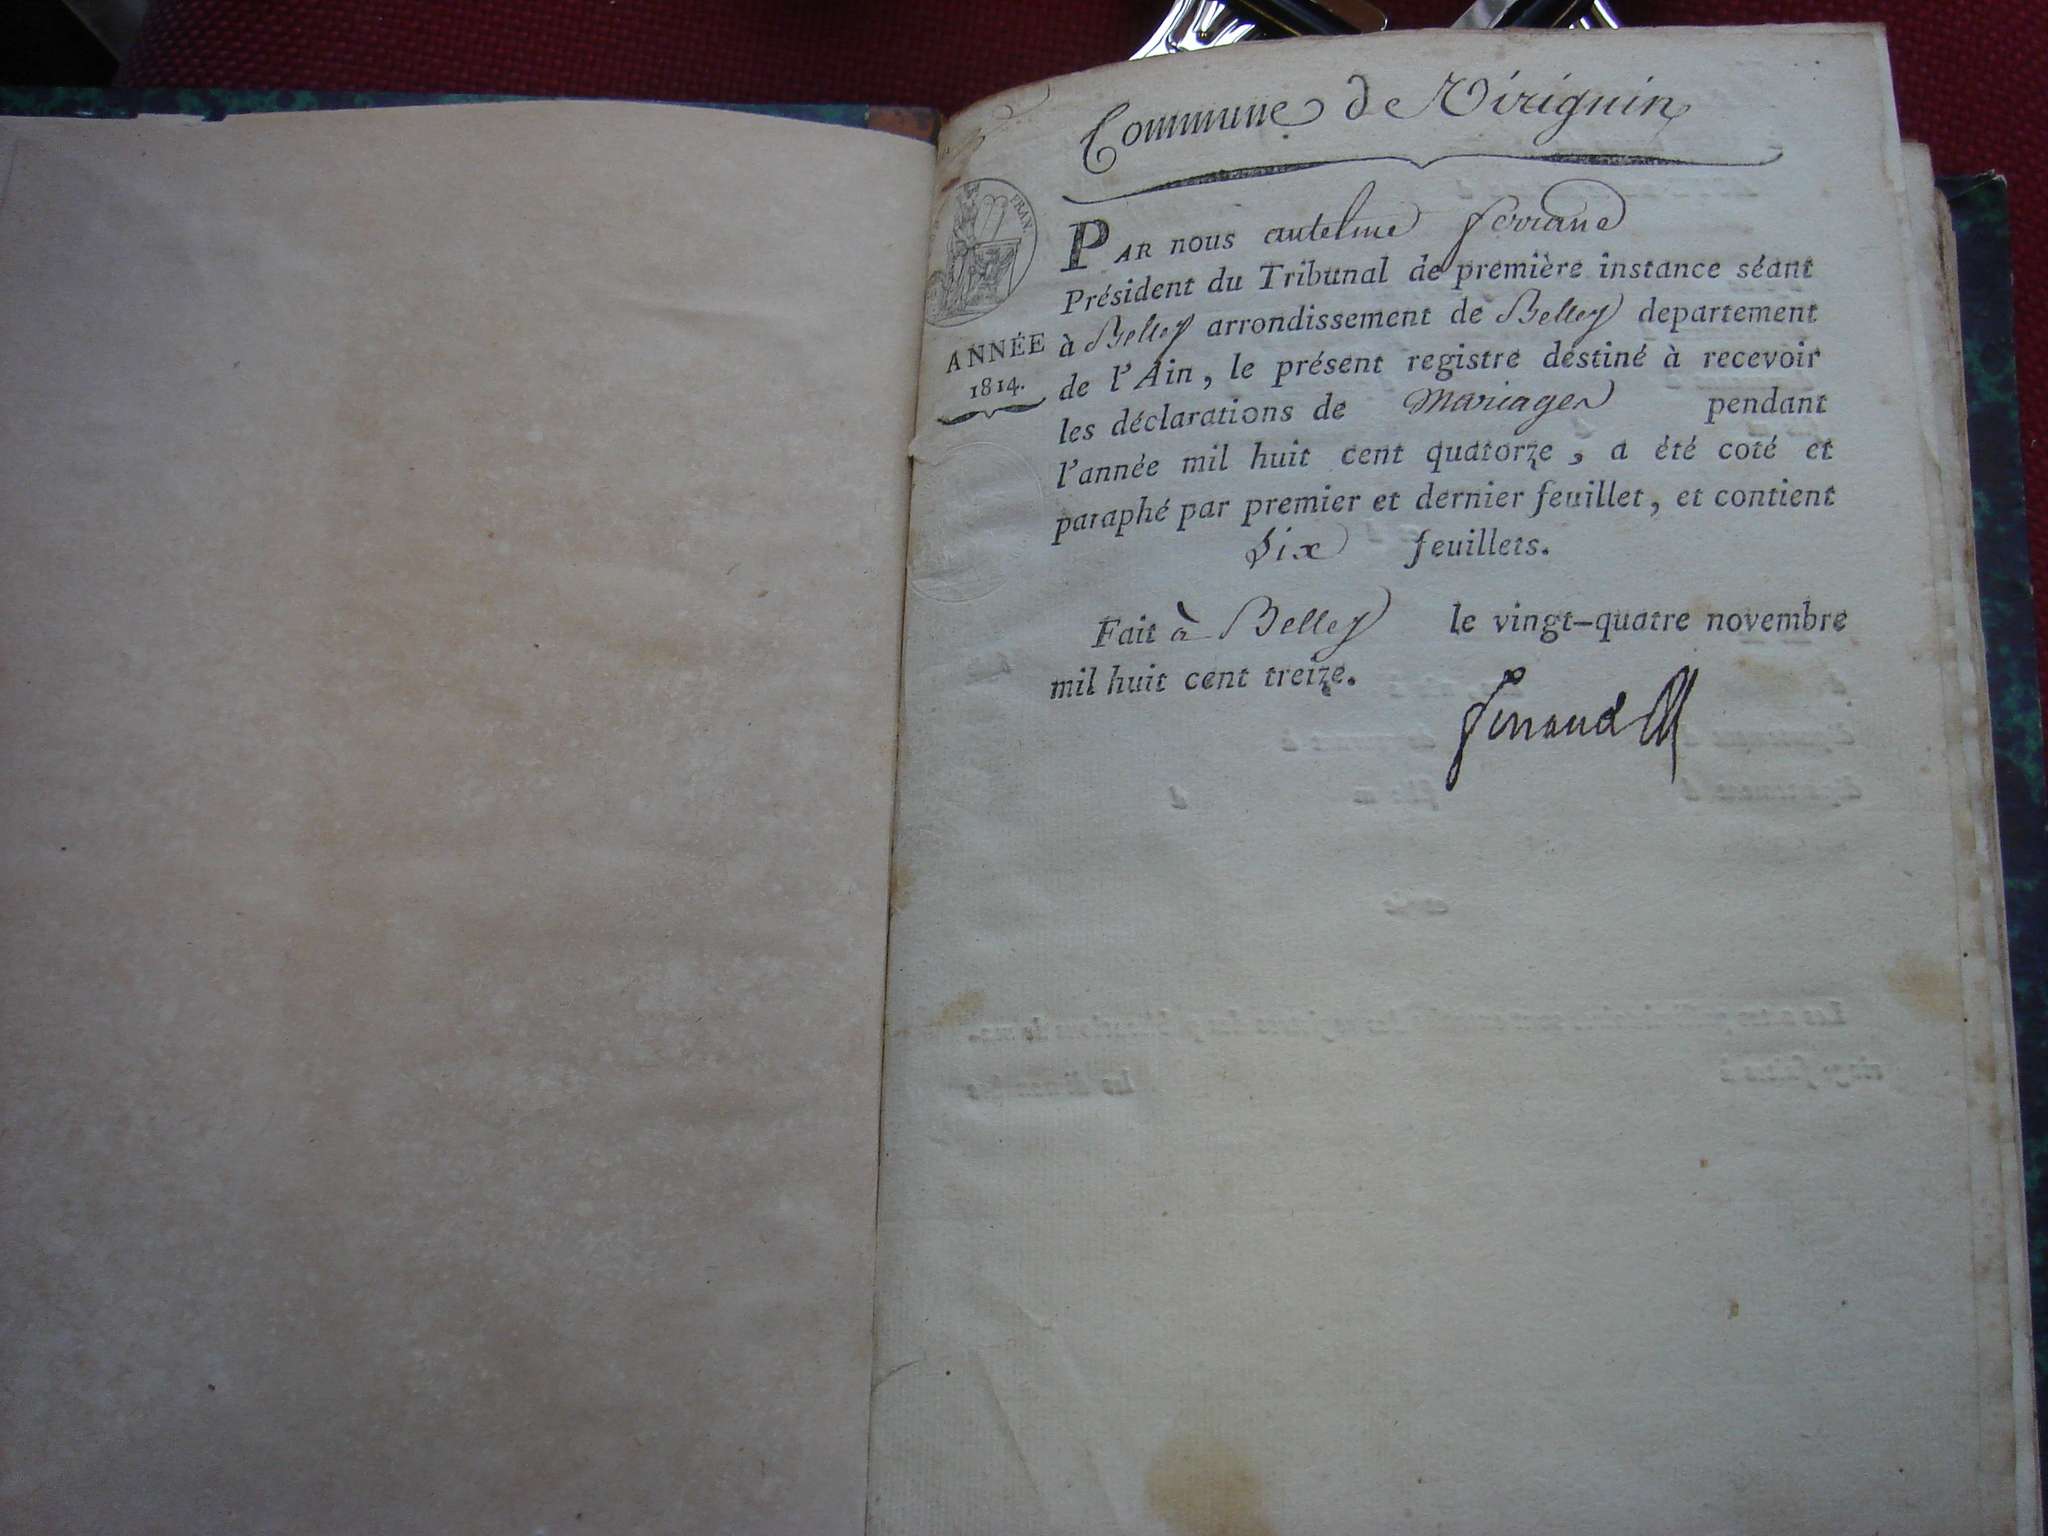 Commune de Virignin
FRAN.
ANNÉE
1814.
PAR nous antelme ferrand
Président du Tribunal de première instance séant
à Belley arrondissement de Belley departement
de l'Ain, le présent registre destiné à recevoir
les déclarations de Mariages pendant
l'année mil huit cent quatorze, a été coté et
paraphé par premier et dernier feuillet, et contient
Six feuillets.
Fait à Belley le vingt-quatre novembre
mil huit cent treize.
ferrand